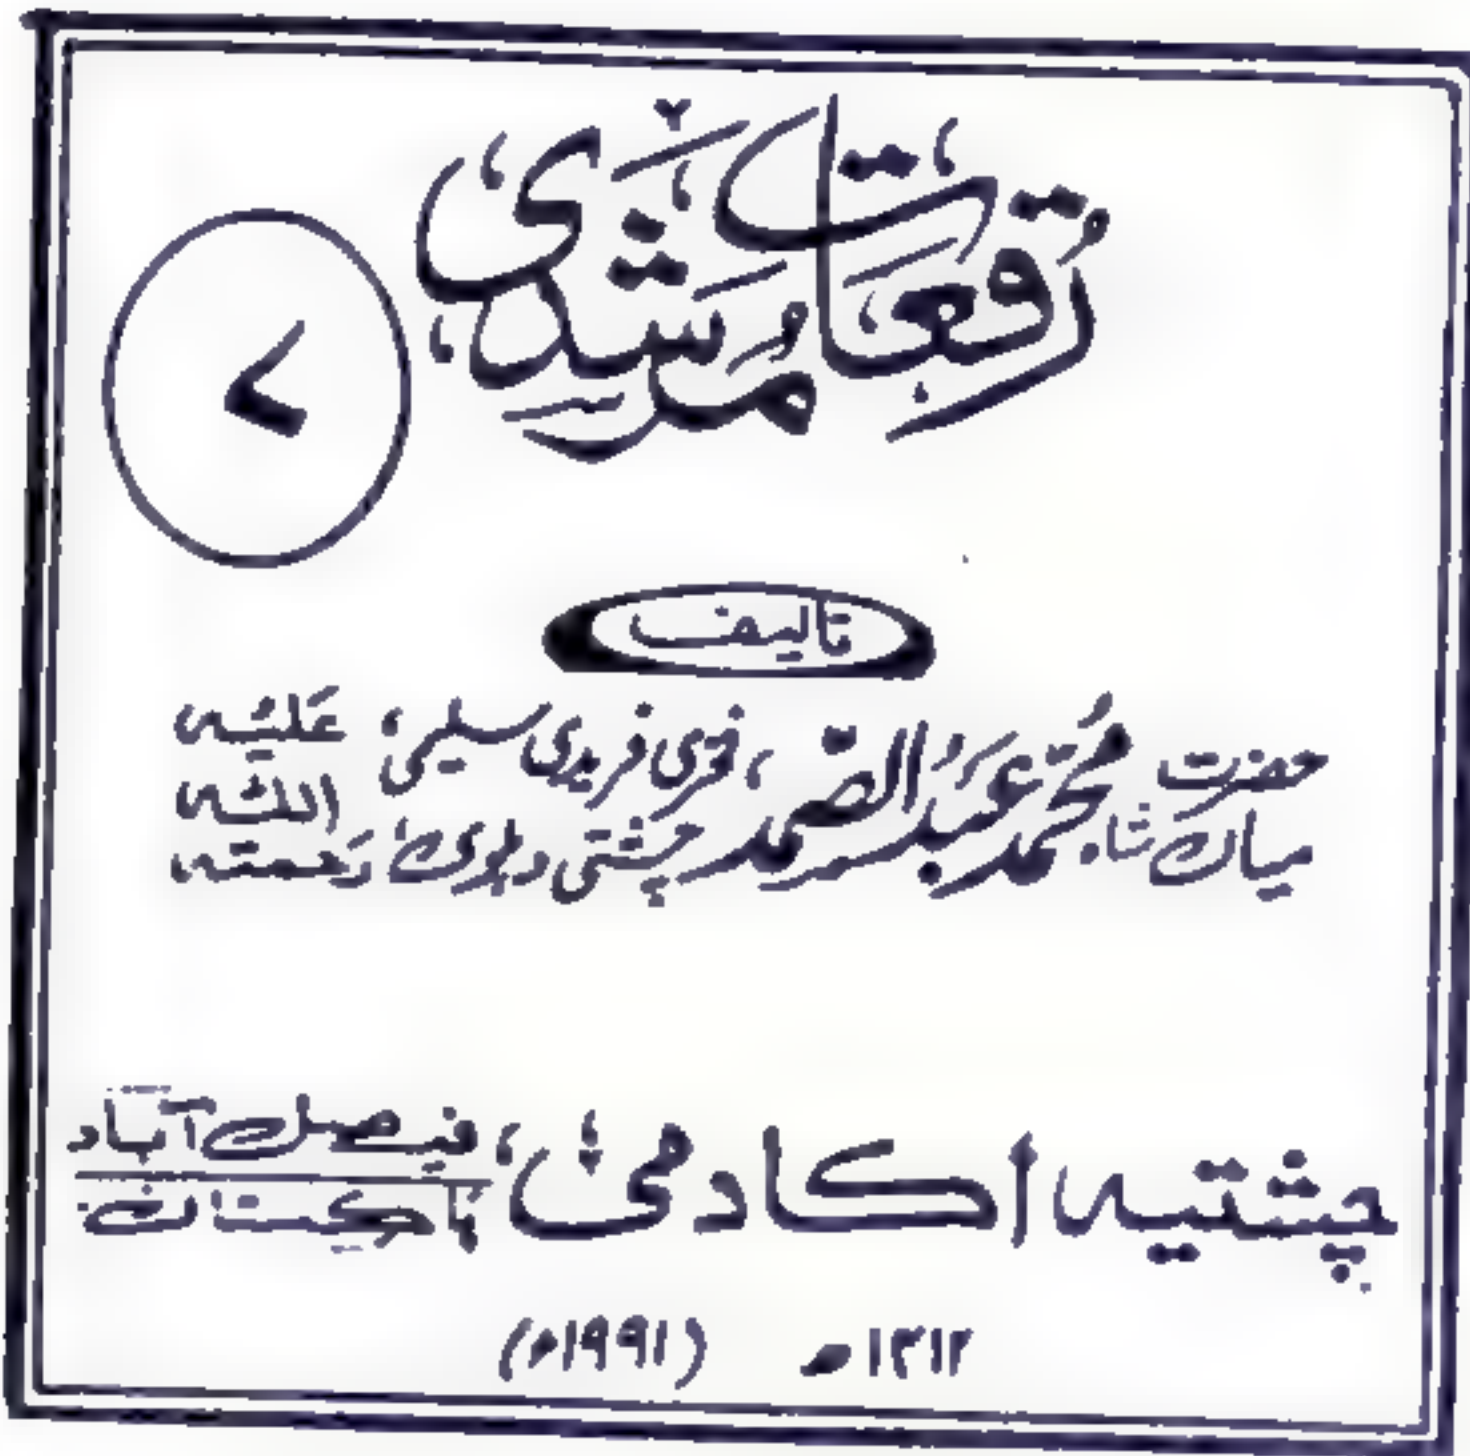 رُقعَات مُرشدی
۷
تالیف
حضرت میاں شاہ مُحمّد عَبدُ الصّمد، فخری فریدی سلیمی، چشتی دہلوی رَحمتہ اللہ عَلیْہ
چشتیہ اکادمی، فیصل آباد پاکستان
۱۴۱۲ھ (۱۹۹۱ء)